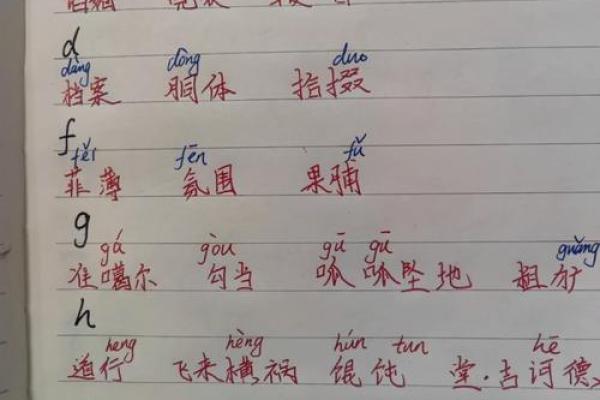 d
dàng dòng duo
档案 胴体 拾掇
f
fěi fēn fǔ
菲薄 氛围 果脯
g
gá gòu gū gū guǎng
准噶尔 勾当 呱呱坠地 粗犷
h
heng hèng hún tun hē
道行 飞来横祸 馄饨 堂·吉诃德